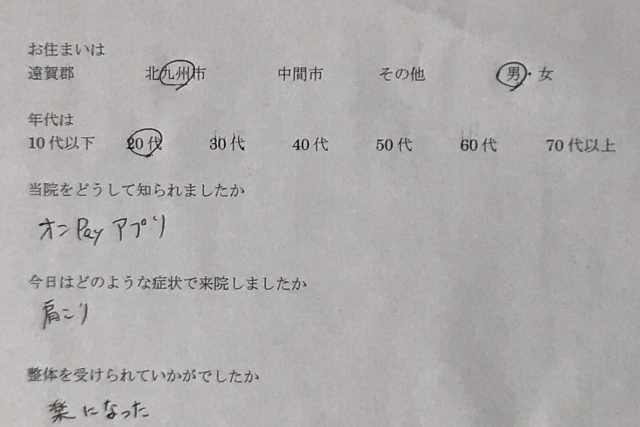 お住まいは
遠賀郡 北九州市 中間市 その他 男・女
年代は
10代以下 20代 30代 40代 50代 60代 70代以上
当院をどうして知られましたか
オンPayアプリ
今日はどのような症状で来院しましたか
肩こり
整体を受けられていかがでしたか
楽になった